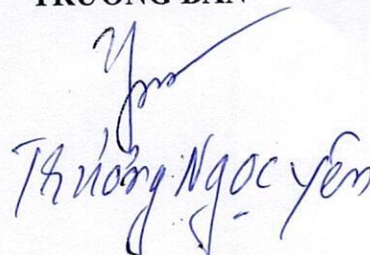 TRƯỞNG BAN
Trương Ngọc Yến